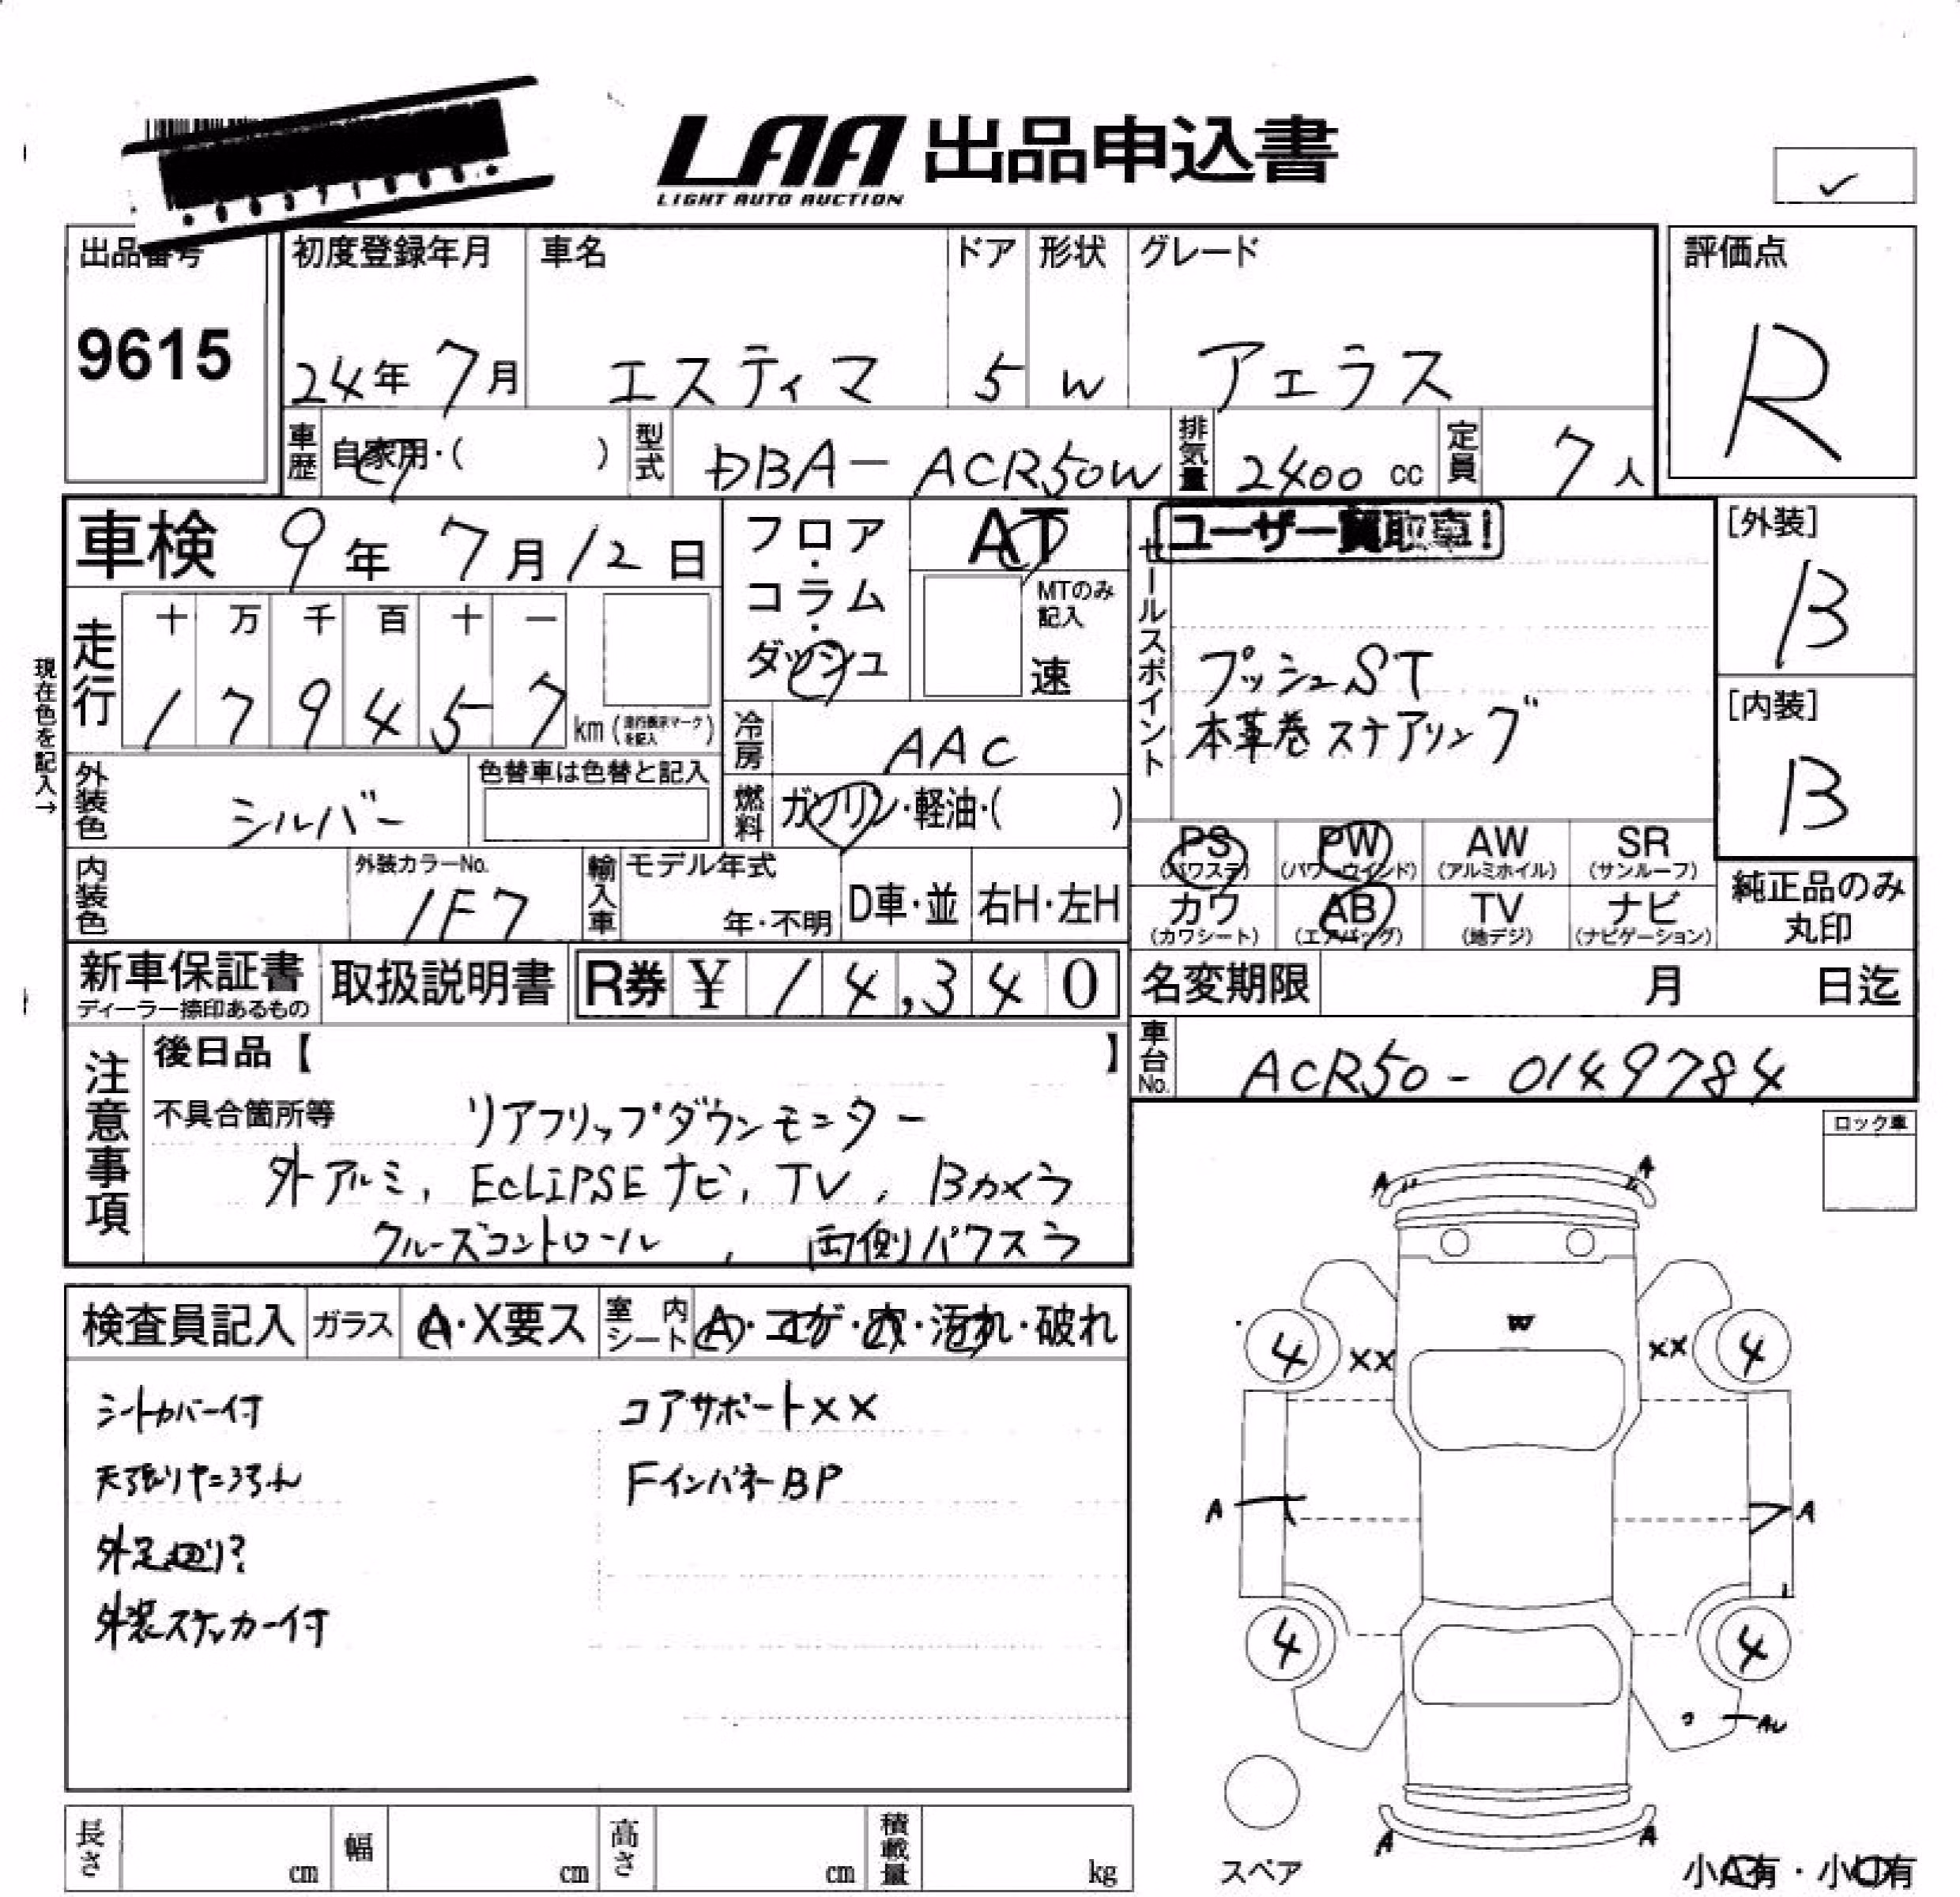 LAA 出品申込書
LIGHT AUTO AUCTION
出品番号 初度登録年月 車名 ドア 形状 グレード 評価点
9615 24年 7月 エスティマ 5 W アエラス R
車歴 自家用・( ) 型式 DBA-ACR50W 排気量 2400 cc 定員 7人
車検 9年 7月 12日 フロア・コラム・ダッシュ AT セールスポイント ユーザー買取車! [外装]
B
MTのみ記入
速
現在色を記入→
走行 十 万 千 百 十 一
1 7 9 4 5 7 km (走行表示マークを記入)
プッシュST
本革巻ステアリング
[内装]
B
冷房 AAC
外装色 シルバー 色替車は色替と記入 燃料 ガソリン・軽油・( )
PS (パワステ) PW (パワーウインド) AW (アルミホイル) SR (サンルーフ)
内装色 外装カラーNo. 1F7 輸入車 モデル年式 年・不明 D車・並 右H・左H
カワ (カワシート) AB (エアバッグ) TV (地デジ) ナビ (ナビゲーション) 純正品のみ丸印
新車保証書 ディーラー捺印あるもの 取扱説明書 R券 ¥ 14,340 名変期限 月 日迄
車台No. ACR50-0149784
注意事項 後日品【 】
不具合箇所等 リアフリップダウンモニター
外アルミ, ECLIPSEナビ, TV, Bカメラ
クルーズコントロール, 両側パワスラ
ロック車
検査員記入 ガラス A・X要ス 室内シート A・コゲ・穴・汚れ・破れ
シートカバー付 コアサポートXX
天張りヤニ汚れ FインパネーBP
外足廻り?
外装ステッカー付
A A
W
4 XX XX 4
A A
4 4
AU
A A
スペア
長さ cm 幅 cm 高さ cm 積載量 kg
小A有・小U有